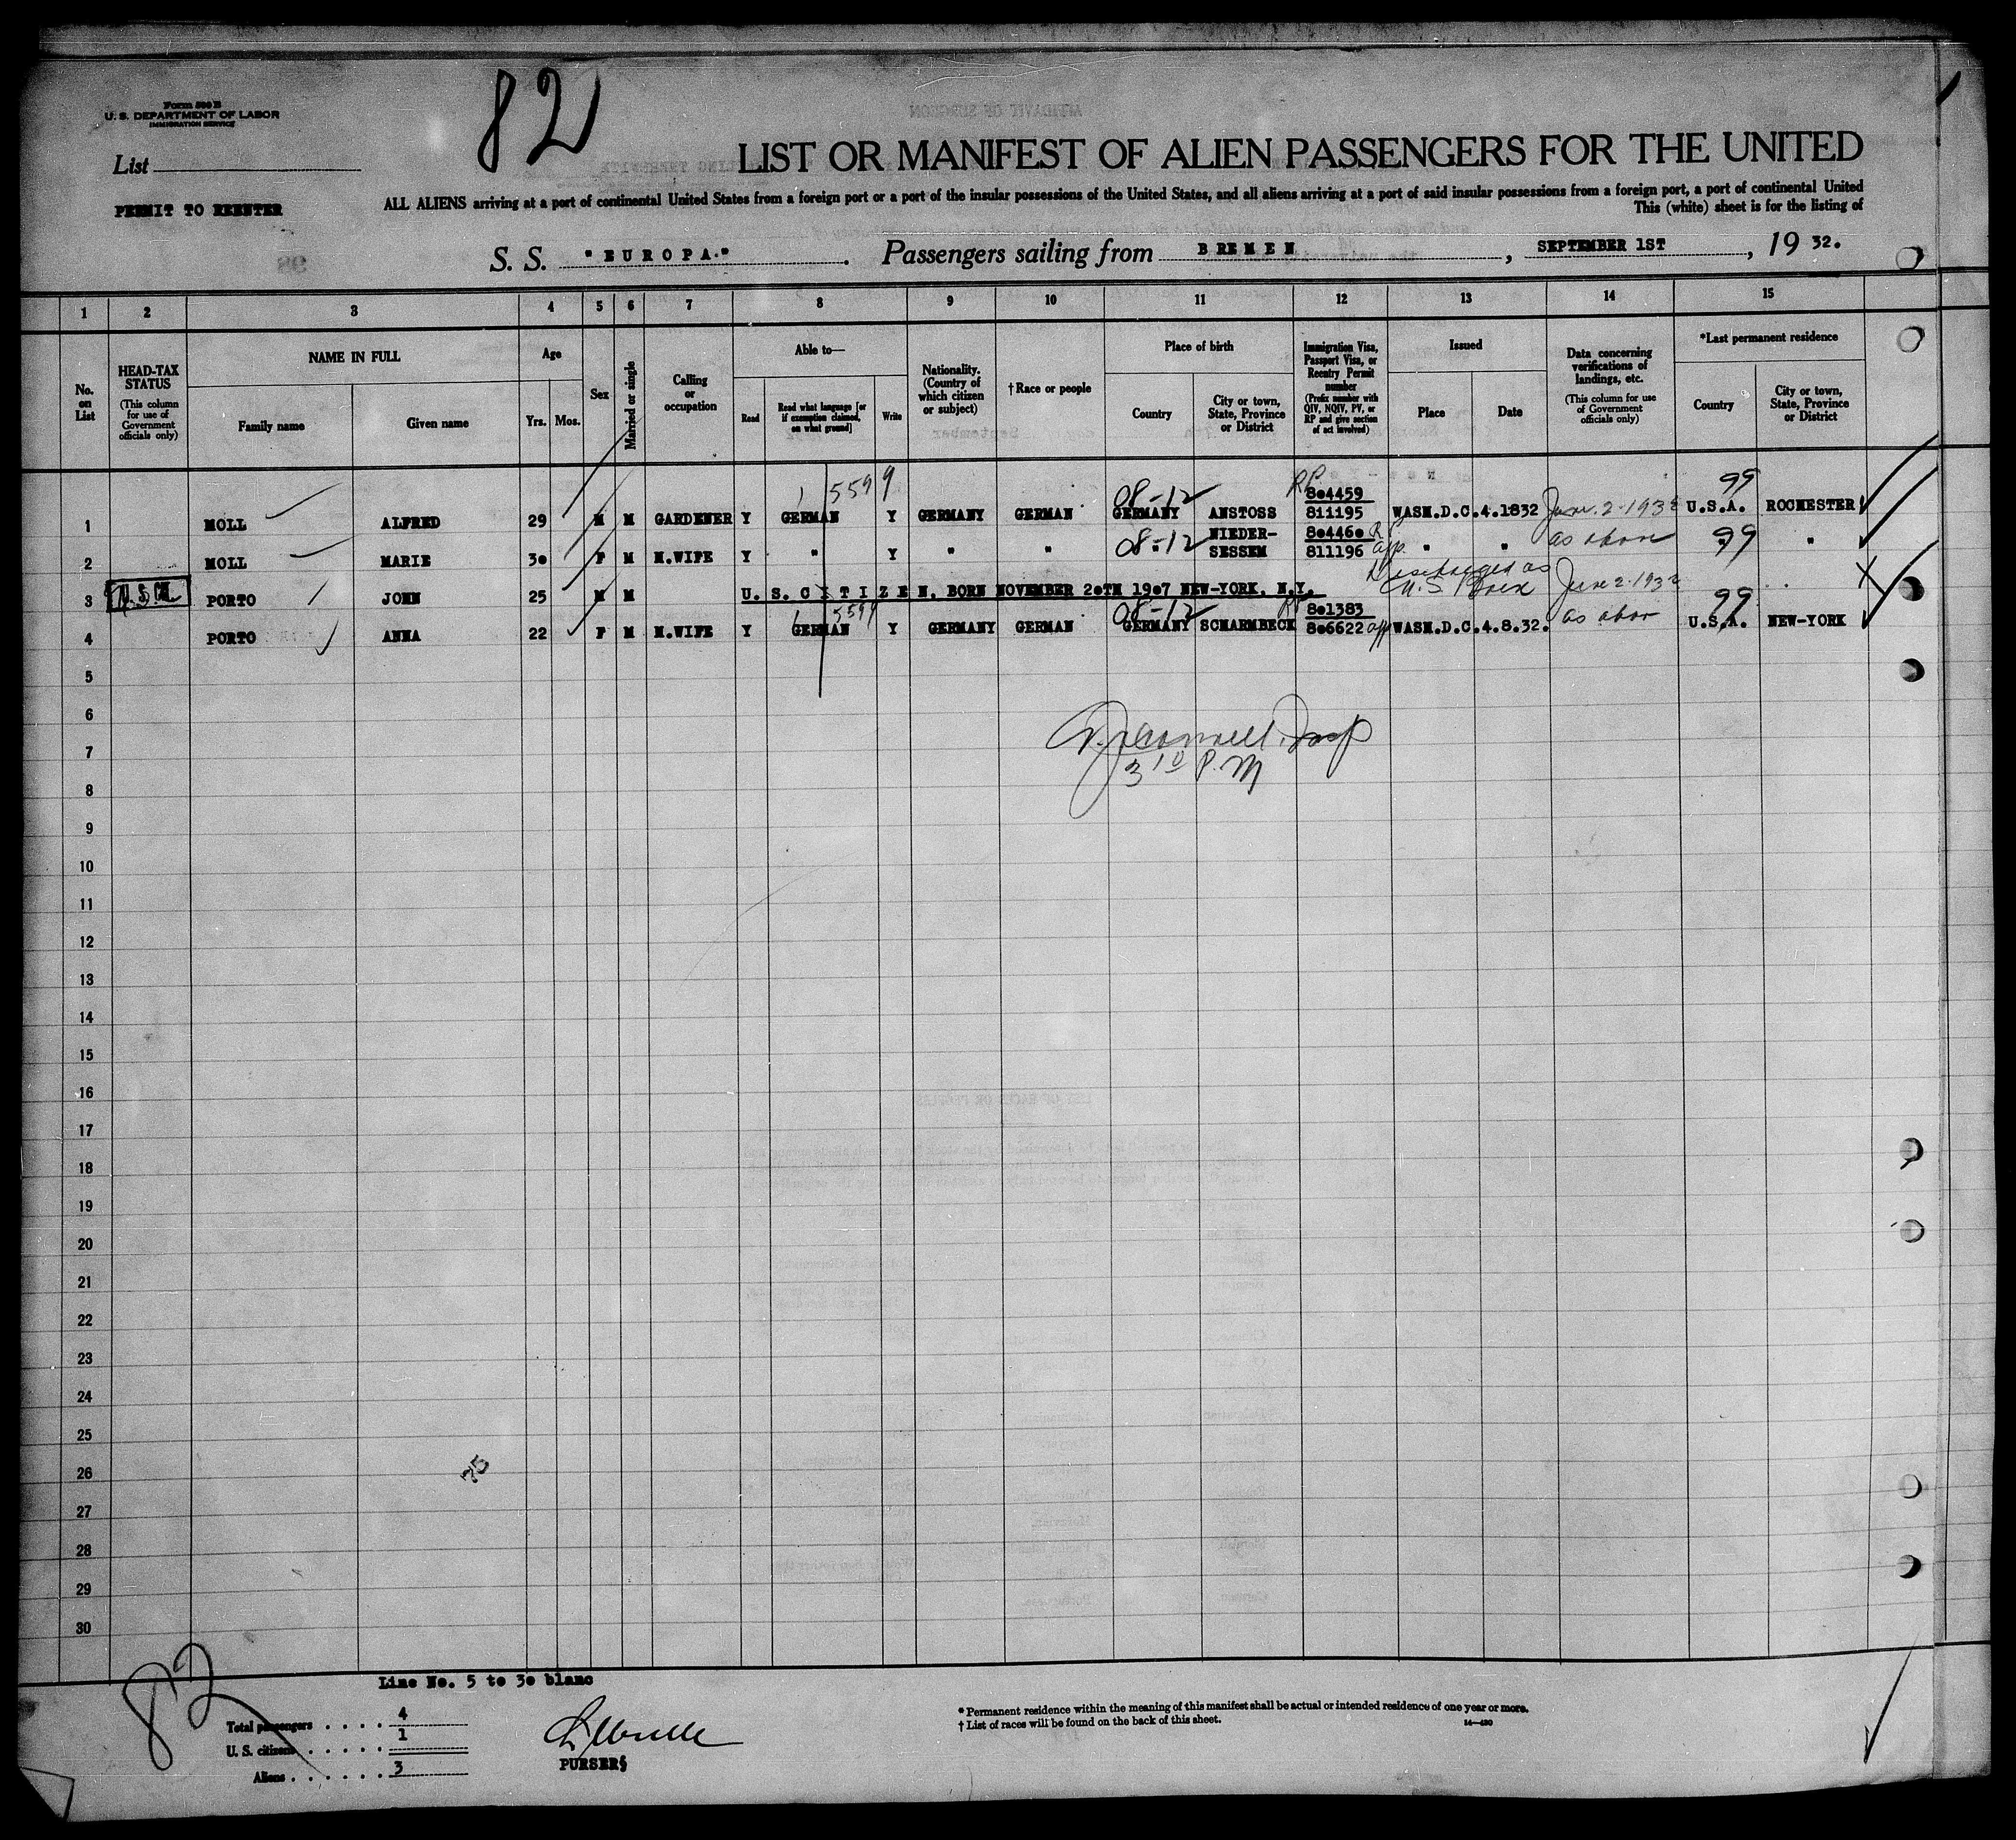 Form 500 B
U. S. DEPARTMENT OF LABOR
IMMIGRATION SERVICE
82
List
PERMIT TO REENTER
LIST OR MANIFEST OF ALIEN PASSENGERS FOR THE UNITED
ALL ALIENS arriving at a port of continental United States from a foreign port or a port of the insular possessions of the United States, and all aliens arriving at a port of said insular possessions from a foreign port, a port of continental United
This (white) sheet is for the listing of
S. S. "EUROPA." Passengers sailing from BREMEN, SEPTEMBER 1ST, 19 32.
1 2 3 4 5 6 7 8 9 10 11 12 13 14 15
No. on List
HEAD-TAX STATUS
(This column for use of Government officials only)
NAME IN FULL
Family name
Given name
Age
Yrs. Mos.
Sex
Married or single
Calling or occupation
Able to—
Read
Read what language [or if exemption claimed, on what ground]
Write
Nationality. (Country of which citizen or subject)
†Race or people
Place of birth
Country
City or town, State, Province or District
Immigration Visa, Passport Visa, or Reentry Permit number
(Prefix number with QIV, NQIV, PV, or RP and give section of act involved)
Issued
Place
Date
Data concerning verifications of landings, etc.
(This column for use of Government officials only)
*Last permanent residence
Country
City or town, State, Province or District
1 5599 08-12 RP 8o4459 99
1 MOLL ALFRED 29 M M GARDENER Y GERMAN Y GERMANY GERMAN GERMANY ANSTOSS 811195 WASH.D.C.4.1832 June 2-1932 U.S.A. ROCHESTER
08-12 NIEDER- 8o446o R as above 99
2 MOLL MARIE 3o F M H.WIFE Y " Y " " " SESSEM 811196 app. " " " "
Discharged as
3 U.S.Cit. PORTO JOHN 25 M M U. S. CITIZEN, BORN NOVEMBER 2oTH 19o7 NEW-YORK, N.Y. U.S. Born June 2-1932
1 5599 08-12 RP 8o1383 99
4 PORTO ANNA 22 F M H.WIFE Y GERMAN Y GERMANY GERMAN GERMANY SCHARMBECK 8o6622 app WASH.D.C.4.8.32. as abov U.S.A. NEW-YORK
5
6
7
3 10 P.M
8
9
10
11
12
13
14
15
16
17
18
19
20
21
22
23
24
25
26
27
28
29
30
Line No. 5 to 3o blanc
82
Total passengers . . . . 4
U. S. citizens . . . . . 1
Aliens . . . . . . 3
PURSER
* Permanent residence within the meaning of this manifest shall be actual or intended residence of one year or more.
† List of races will be found on the back of this sheet.
14—430